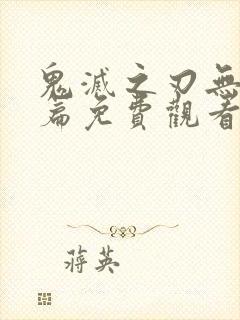 鬼滅之刃無
篇免費觀看
蔣英